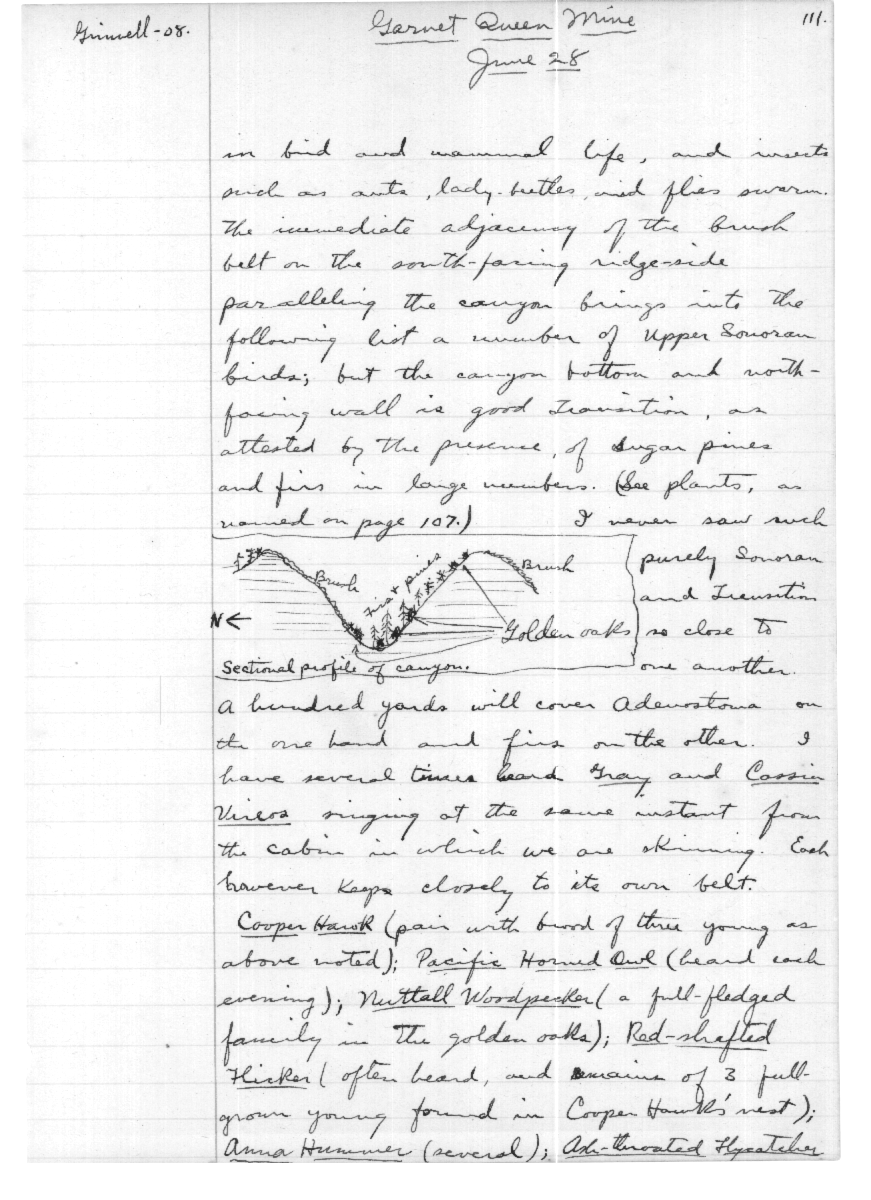 Grinnell-08.
Garnet Queen Mine
111.
June 28
in bird and mammal life, and insects
such as ants, lady-beetles, and flies swarm.
The immediate adjacency of the brush
belt on the south-facing ridge-side
paralleling the canyon brings into the
following list a number of Upper Sonoran
birds; but the canyon bottom and north-
facing wall is good Transition, as
attested by the presence, of sugar pines
and firs in large numbers. (See plants, as
named on page 107.) I never saw such
purely Sonoran
and Transition
so close to
one another.
Brush
Firs & pines
Brush
N←
Golden oaks
Sectional profile of canyon.
A hundred yards will cover Adenostoma on
the one hand and firs on the other. I
have several times heard Gray and Cassin
Vireos singing at the same instant from
the cabin in which we are skinning. Each
however keeps closely to its own belt.
Cooper Hawk (pair with brood of three young as
above noted); Pacific Horned Owl (heard each
evening); Nuttall Woodpecker (a full-fledged
family in the golden oaks); Red-shafted
Flicker (often heard, and remains of 3 full-
grown young found in Cooper Hawk's nest);
Anna Hummer (several); Ash-throated Flycatcher